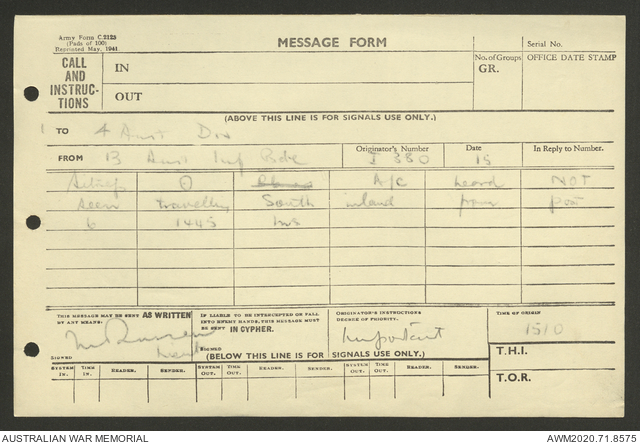 Army Form C.2128
(Pads of 100)
Reprinted May, 1941
MESSAGE FORM
Serial No.
CALL AND INSTRUC- TIONS
IN
OUT
No. of Groups GR.
OFFICE DATE STAMP
(ABOVE THIS LINE IS FOR SIGNALS USE ONLY.)
TO 4 Aust Div
FROM 13 Aust Inf Bde Originator's Number I 380 Date 15 In Reply to Number.
Sitrep A/C heard NOT
seen travelling South inland from post
6 1445 hrs
THIS MESSAGE MAY BE SENT AS WRITTEN BY ANY MEANS.
IF LIABLE TO BE INTERCEPTED OR FALL INTO ENEMY HANDS, THIS MESSAGE MUST BE SENT IN CYPHER.
ORIGINATOR'S INSTRUCTIONS DEGREE OF PRIORITY.
Important
TIME OF ORIGIN
1510
SIGNED
SIGNED
(BELOW THIS LINE IS FOR SIGNALS USE ONLY.)
T.H.I.
SYSTEM IN. TIME IN. READER. SENDER. SYSTEM OUT. TIME OUT. READER. SENDER. SYSTEM OUT. TIME OUT. READER. SENDER.
T.O.R.
AUSTRALIAN WAR MEMORIAL
AWM2020.71.8575